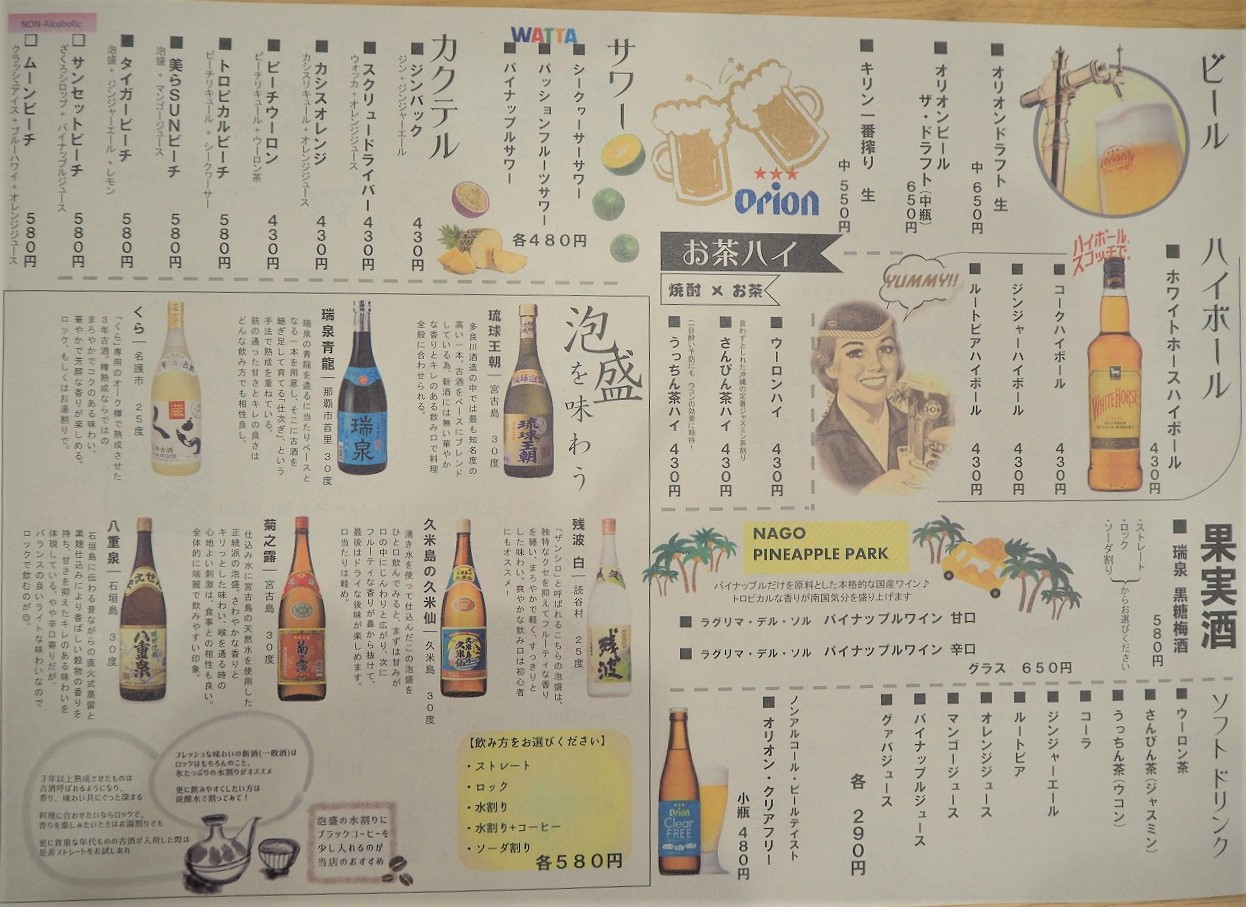 ビール
■ オリオンドラフト 生
中 650円
■ オリオンビール
ザ・ドラフト(中瓶)
650円
■ キリン一番搾り 生
中 550円
Orion
サワー
WATTA
■ シークヮーサーサワー
■ パッションフルーツサワー
■ パイナップルサワー
各480円
カクテル
■ ジンバック 430円
ジン+ジンジャーエール
■ スクリュードライバー 430円
ウオッカ+オレンジジュース
■ カシスオレンジ 430円
カシスリキュール+オレンジジュース
■ ピーチウーロン 430円
ピーチリキュール+ウーロン茶
■ トロピカルピーチ 580円
ピーチリキュール+シークワーサー
■ 美らSUNビーチ 580円
泡盛+マンゴージュース
■ タイガービーチ 580円
泡盛+ジンジャーエール+レモン
NON-Alcoholic
□ サンセットビーチ 580円
ざくろシロップ+パイナップルジュース
□ ムーンビーチ 580円
クラッシュアイス+ブルーハワイ+オレンジジュース
ハイボール
■ ホワイトホースハイボール
430円
ハイボール、
スコッチで。
WHITE HORSE
■ コークハイボール 430円
■ ジンジャーハイボール 430円
■ ルートビアハイボール 430円
YUMMY!!
お茶ハイ
焼酎×お茶
■ ウーロンハイ 430円
■ さんぴん茶ハイ 430円
言わずとしれた沖縄の定番ジャスミン茶割り
■ うっちん茶ハイ 430円
二日酔い予防にも ウコンの効果に期待!
果実酒
■ 瑞泉 黒糖梅酒
580円
・ストレート
・ロック
・ソーダ割り
からお選びください
NAGO
PINEAPPLE PARK
パイナップルだけを原料とした本格的な国産ワイン♪
トロピカルな香りが南国気分を盛り上げます
■ ラグリマ・デル・ソル パイナップルワイン 甘口
■ ラグリマ・デル・ソル パイナップルワイン 辛口
グラス 650円
ソフトドリンク
■ ウーロン茶
■ さんぴん茶(ジャスミン)
■ うっちん茶(ウコン)
■ コーラ
■ ジンジャーエール
■ ルートビア
■ オレンジジュース
■ マンゴージュース
■ パイナップルジュース
■ グァバジュース
各 290円
ノンアルコール・ビールテイスト
■ オリオン・クリアフリー
小瓶 480円
Orion
Clear
FREE
泡盛を味わう
琉球王朝 | 宮古島 30度
多良川酒造の中では最も知名度の
高い一本。古酒をベースにブレンド
している為、新酒には無い華やか
な香りとキレのある飲み口で料理
全般に合わせられる。
琉球王朝
瑞泉青龍 | 那覇市首里 30度
瑞泉の青龍を造るに当たりベースと
なる一本を用意し、そこに古酒を
継ぎ足して育てる「仕次ぎ」という
手法で熟成を重ねている。
筋の通った甘さとキレの良さは
どんな飲み方でも相性良し。
瑞泉
くら | 名護市 25度
「くら」専用のオーク樽で熟成させた
3年古酒。樽熟成ならではの
まろやかでコクのある味わい、
華やかで芳醇な香りが楽しめる。
ロック、もしくはお湯割りで。
くら
残波 白 | 読谷村 25度
「ザンシロ」と呼ばれるこちらの泡盛は、
独特なクセを抑えてフルーティな香り
を纏い、まろやかで軽く、すっきりと
した味わい。爽やかな飲み口は初心者
にもオススメ!
残波
久米島の久米仙 | 久米島 30度
湧き水を使って仕込んだこの泡盛を
ひと口飲んでみると、まずは甘みが
口の中にじんわりと広がり、次に
フルーティな香りが鼻から抜けて、
最後はドライな後味が楽しめます。
口当たりは軽め。
菊之露 | 宮古島 30度
仕込み水に宮古島の天然水を使用した
正統派の泡盛。さわやかな香りと
キリッとした味わい、喉を通る時の
心地よい刺激は、食事との相性も良い。
全体的に端麗で飲みやすい印象。
菊之露
八重泉 | 石垣島 30度
石垣島に伝わる昔ながらの直火式蒸留と
黒麹仕込みにより香ばしい穀物の香りを
持ち、甘さを抑えたキレのある味わいを
体現している。やや辛口寄りだが、
バランスの良いライトな味わいなので
ロックで飲むのが◎。
八重泉
【飲み方をお選びください】
・ストレート
・ロック
・水割り
・水割り+コーヒー
・ソーダ割り
各580円
泡盛の水割りに
ブラックコーヒーを
少し入れるのが
当店のおすすめ
フレッシュな味わいの新酒(一般酒)は
ロックはもちろんのこと、
水たっぷりの水割りがオススメ
更に飲みやすくしたい方は
炭酸水で割ってみて!
3年以上熟成させたものは
古酒呼ばれるようになり、
香り、味わい共にぐっと深まる
料理に合わせたいならロックで、
香りを楽しみたいときはお湯割りでも
更に貴重な年代ものの古酒が入荷した際は
是非ストレートをお試しあれ